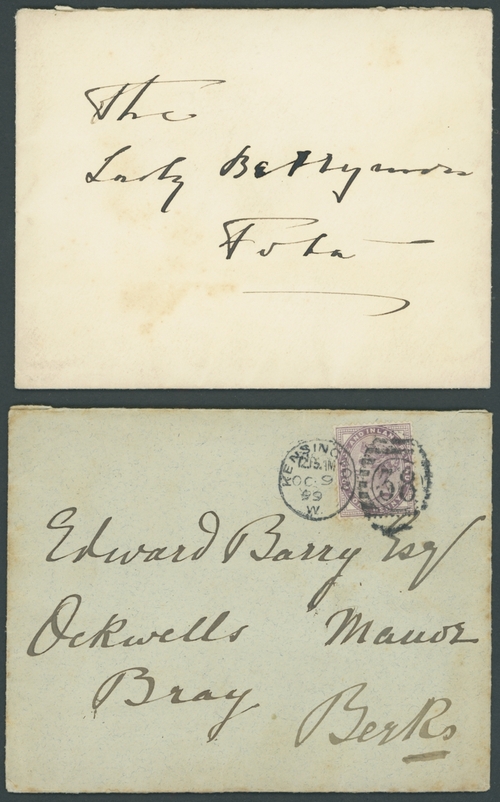 The
Lady Barrymore
Fota
KENSINGTON
OC 9
99
W.
38
Edward Barry Esq
Ockwells Manor
Bray
Berks